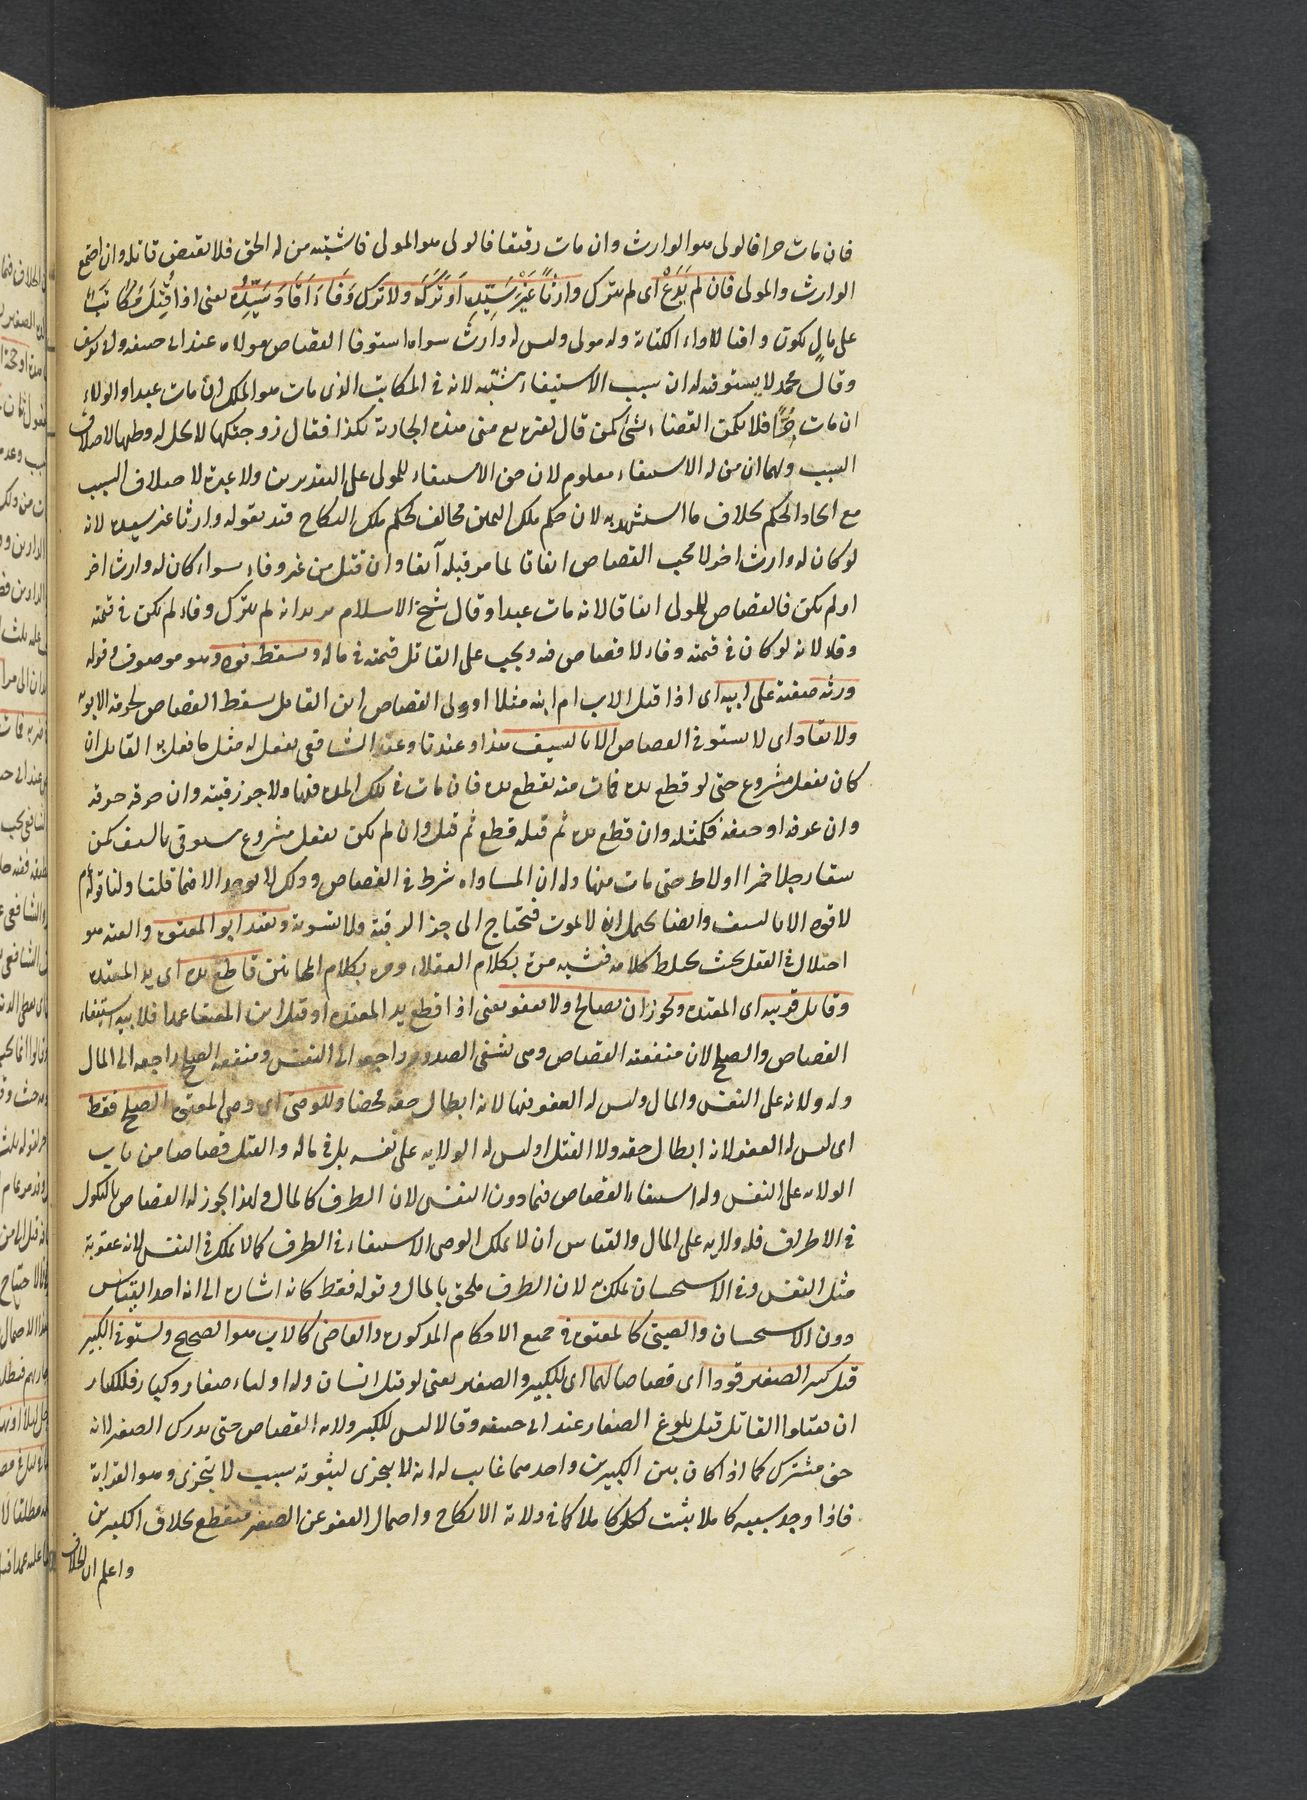 فان مات حرا فالولى هو الوارث وان مات رقيقا فالولى هو المولى فاشتبه من له الحق فلا يقتص قاتله وان اجتمع
الوارث والمولى فان لم يدع اى لم يترك وارثا غير سيده او تركه ولا ترك وفاء اقاد سيده يعنى اذا قتل مكاتب
على مال يكون وافيا لاداء الكتابة وله مولى وليس له وارث سواه استوفا القصاص مولاه عند ابى حنيفه وابى يوسف
وقال محمد لا يستوفيه لان سبب الاستيفاء يشتبه لانه فى المكاتب الذى مات هو الملك ان مات عبدا والولاء
ان مات حرا فلا يمكن القضاء بشئ كمن قال لغيره بع منى هذه الجارية بكذا فقال زوجتكها لا يحل له وطيها لاختلاف
السبب ولهما ان من له الاستيفاء معلوم لان حق الاستيفاء للمولى على التقديرين ولا عبرة لاختلاف السبب
مع اتحاد الحكم بخلاف ما استشهد به لان حكم ملك اليمين مخالف لحكم ملك النكاح قيد بقوله وارثا غير سيده لانه
لو كان له وارث اخر لا يجب القصاص اتفاقا لما مر قبله آنفا وان قتل من غير وفاء سواء كان له وارث اخر
او لم يكن فالقصاص للمولى اتفاقا لانه مات عبدا وقال شيخ الاسلام يريد انه لم يترك وفاء لم يكن فى قيمته
وفاء لانه لو كان فى قيمته وفاء لا قصاص فيه ويجب على القاتل قيمته فى ماله ويسقط قود وهو موصوف وقوله
ورثه صفته على ابيه اى اذا قتل الاب ام ابنه مثلا او ولى القصاص ابن القاتل سقط القصاص لحرمة الابوة
ولا يقاد اى لا يستوفى القصاص الا بالسيف هذا وعندنا وعند الشافعى يفعل له مثل ما فعل به القاتل ان
كان بفعل مشروع حتى لو قطع يده فمات منه يقطع يده فان مات فى تلك المدة فبها ولا جز رقبته وان حرقه حرقه
وان غرقه او خنقه فكمثله وان قطع يده ثم قتله قطع ثم قتل وان لم يكن بفعل مشروع سلوقى بالسيف كمن
سقا رجلا خمرا او لاط حتى مات منها وله ان المساواة شرط فى القصاص وذلك لا يوجد الا فيما قلنا ولنا قوله م
لا قود الا بالسيف وايضا يحتمل انه لا يموت فيحتاج الى جز الرقبة ولا تسوية ويقتد ابو المعتوه والعته هو
اختلال فى العقل بحيث يختلط كلامه فيشبه مرة بكلام العقلاء ومرة بكلام المجانين قاطع يده اى يد المعتوه
وقاتل قريبه اى المعتوه ويجوز ان يصالح ولا يعفو يعنى اذا قطع يد المعتوه او قتل ابن المعتوه عمدا فلابيه استيفاء
القصاص والصلح لان منفعته القصاص وهى تشفى الصدور راجعه الى النفس ومنفعه الصلح راجعه الى المال
وله ولاية على النفس والمال وليس له العفو فيها لانه ابطال حقه محضا وللوصى اى وصى المعتوه الصلح فقط
اى ليس له العفو لانه ابطال حقه ولا القتل اذ ليس له الولايه على نفسه بل فى ماله والقتل قصاصا من باب
الولاية على النفس وله استيفاء القصاص فيما دون النفس لان الطرف كالمال ولهذا يجوز له القصاص بالنكول
فى الاطراف فله ولايه على المال والقياس ان لا يملك الوصى الاستيفاء فى الطرف كما لا يملك فى النفس لانه عقوبة
مثل النفس وفى الاستحسان يملكه لان الطرف ملحق بالمال وقوله فقط كانه اشارة الى انه اخذ القياس
دون الاستحسان والصبى كالمعتوه فى جميع الاحكام المذكورة والقاضى كالاب هو الصحيح ويستوفى الكبير
قبل كبر الصغير قودا اى قصاصا لهما اى للكبير والصغير يعنى لو قتل انسان وله اولياء صغار وكبار فللكبار
ان يقتلوا القاتل قبل بلوغ الصغار عند ابى حنيفه وقالا ليس للكبير ولايه القصاص حتى يدرك الصغير لانه
حق مشترك كما اذا كان بين الكبيرين واحدهما غايب له انه لا يتجزى لثبوته بسبب لا يتجزى وهو القرابة
فاذا وجد سببه كاملا يثبت لكل كاملا كما فى ولاية الانكاح واحتمال العفو عن الصغير منقطع بخلاف الكبيرين
واعلم ان الخلاف